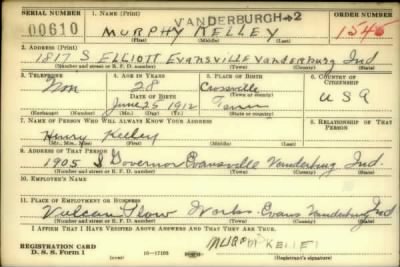 SERIAL NUMBER
1. NAME (Print)
VANDERBURGH→2
ORDER NUMBER
00610
MURPHY KELLEY
1546
(First) (Middle) (Last)
2. ADDRESS (Print)
1817 S ELLIOTT Evansville Vanderburg Ind
(Number and street or R. F. D. number) (Town) (County) (State)
3. TELEPHONE
4. AGE IN YEARS
5. PLACE OF BIRTH
6. COUNTRY OF CITIZENSHIP
Non
28
Crossville
USA
DATE OF BIRTH
(Town or county)
June 25 1912
Tenn
(Mo.) (Day) (Yr.)
(State or country)
7. NAME OF PERSON WHO WILL ALWAYS KNOW YOUR ADDRESS
8. RELATIONSHIP OF THAT PERSON
Henry Kelley
(Mr., Mrs., Miss) (First) (Middle) (Last)
9. ADDRESS OF THAT PERSON
1905 S Governor Evansville Vanderburg Ind.
(Number and street or R. F. D. number) (Town) (County) (State)
10. EMPLOYER'S NAME
11. PLACE OF EMPLOYMENT OR BUSINESS
Vulcan Plow Works Evans Vanderburg Ind
(Number and street or R. F. D. number) (Town) (County) (State)
I AFFIRM THAT I HAVE VERIFIED ABOVE ANSWERS AND THAT THEY ARE TRUE.
REGISTRATION CARD
D. S. S. Form 1
16—17105
(Registrant's signature)